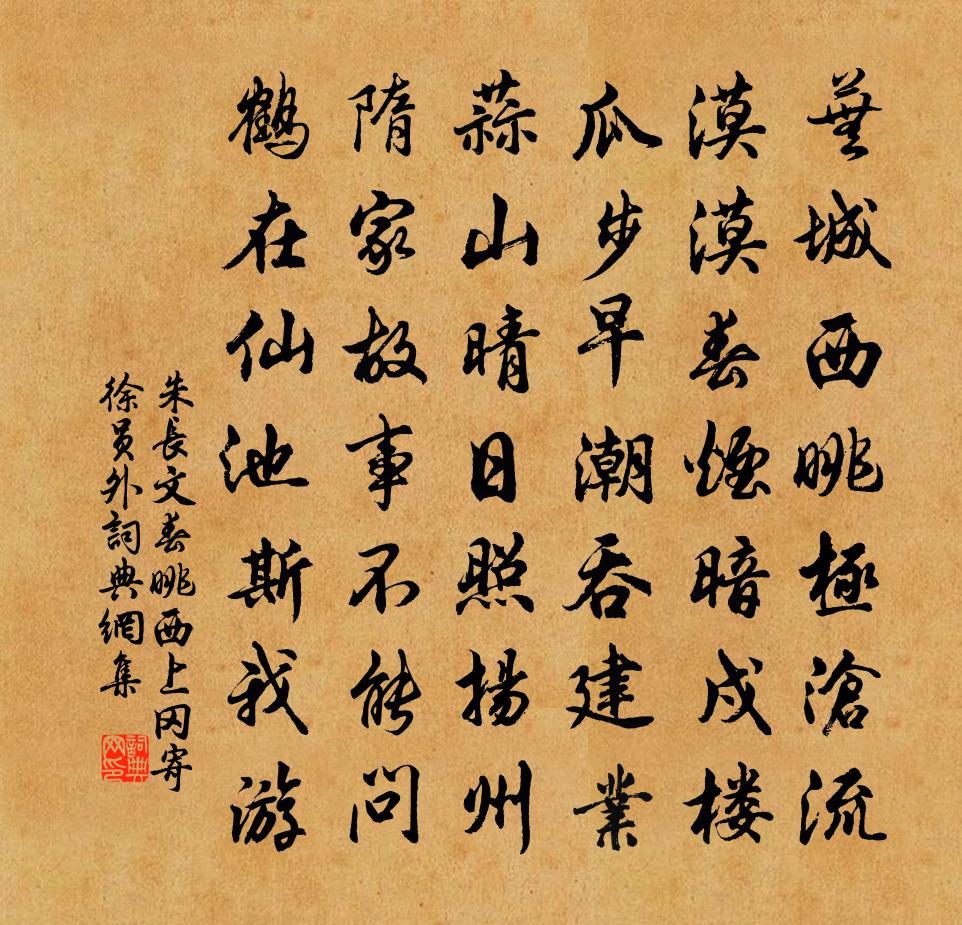 蕪城西眺極滄流
漠漠春煙暗戍楼
瓜步早潮吞建業
蒜山晴日照揚州
隋家故事不能問
鶴在仙池斯我游
朱長文春眺西上岡寄
徐員外詞典網集
詞典
网印